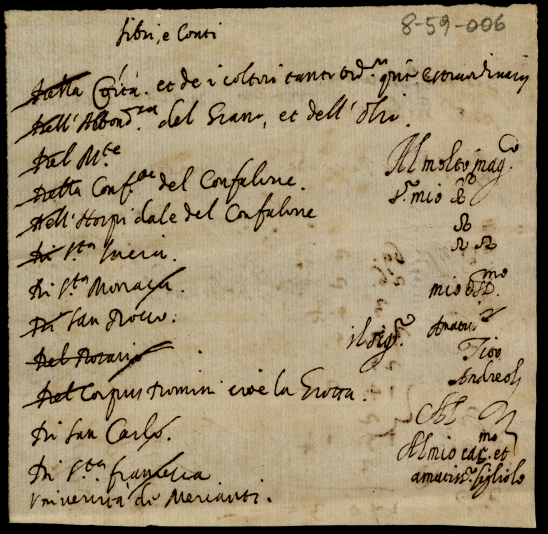 8-59-006
libri, e Conti
Della Città. et de i coltori tanto ord.rii que estraordinarii
Dell'Abbond.za del Grano, et dell'Olio.
Del M.te
Della Conf.ne del Confalone.
Dell'Hospidale del Confalone
Di S.ta Lucia.
Di S.ta Monaca.
Di San Rocco.
Del Rosario
Del Corpus Domini cioè la Grotta.
Di San Carlo.
Di S.ta Francesca
Università di Mercanti.
Al molto mag.co
S.r mio
mio
il sig.r
Amatiss.
Gio:
Andreoli
Al
Al mio car.mo et
amatiss.o figliolo